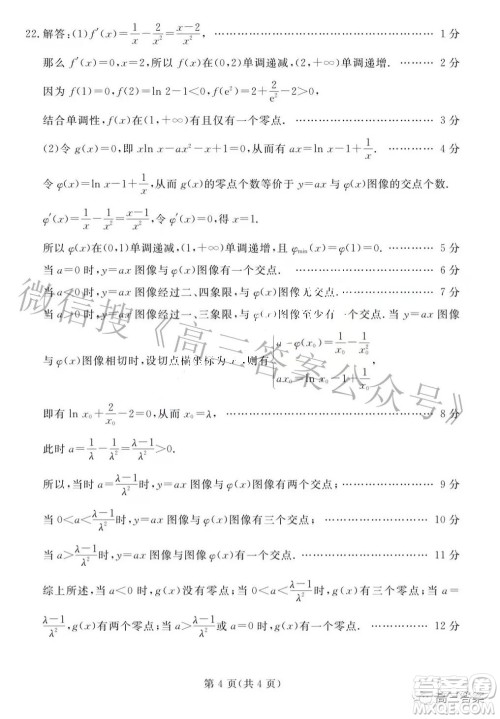 22. 解答:(1) f′(x)=1/x-2/x²=(x-2)/x², ………… 1 分
那么 f′(x)=0,所以 f(x)在(0,2)单调递减,(2,+∞)单调递增. ………… 2 分
因为 f(1)=0,f(2)=ln 2-1<0,f(e²)=2+2/e²-2>0,
结合单调性,f(x)在(1,+∞)有且仅有一个零点. ………… 3 分
(2)令 g(x)=0,即 xln x-ax²-x+1=0,所以 ax=ln x-1+1/x. ………… 4 分
令 φ(x)=ln x-1+1/x,g(x)的零点个数等价于 y=ax 与 φ(x)图像的交点个数.
φ′(x)=1/x-1/x²=(x-1)/x²,令 φ′(x)=0,得 x=1.
所以 φ(x)在(0,1)单调递减,(1,+∞)单调递增,且 φmin(x)=φ(1)=0. ………… 5 分
当 a=0 时,y=ax 图像与φ(x)图像有一个交点. ………… 6 分
当 a<0 时,y=ax 图像经过二、四象限,与 φ(x)图像无交点. ………… 7 分
当 a>0 时,y=ax 图像经过一、三象限,与 φ(x)图像至少有一个交点. 当 y=ax 图像
与 φ(x)图像相切时,设切点横坐标为 x₀,则有 a=φ′(x₀)=1/x₀-1/x₀², ax₀=ln x₀-1+1/x₀.
即有 ln x₀+2/x₀-2=0,从而 x₀=λ, ………… 8 分
此时 a=1/λ-1/λ²=(λ-1)/λ²>0.
所以,当 a=(λ-1)/λ²时,y=ax 图像与 φ(x)图像有两个交点; ………… 9 分
当 0<a<(λ-1)/λ²时,y=ax 图像与 φ(x)图像有三个交点; ………… 10 分
当 a>(λ-1)/λ²时,y=ax 图像与图像有一个交点. ………… 11 分
综上所述,当 a<0 时,g(x)没有零点;当 0<a<(λ-1)/λ²时,g(x)有三个零点;当 a=
(λ-1)/λ²时,g(x)有两个零点;当 a>(λ-1)/λ²或 a=0 时,g(x)有一个零点. ………… 12 分
第 4 页(共 4 页)
微信搜《高三答案公众号》
高三答案
MXQE.COM